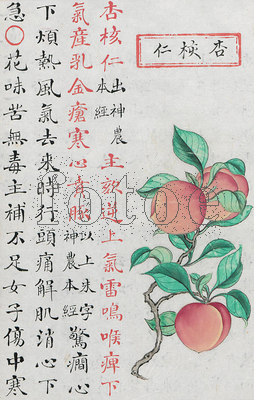 杏核仁
杏核仁出神農本經主欬逆上氣雷鳴喉痺下
氣產乳金瘡寒心賁豚以上朱字神農本經驚癇心
下煩熱風氣去來時行頭痛解肌消心下
急○花味苦無毒主補不足女子傷中寒
fotoe